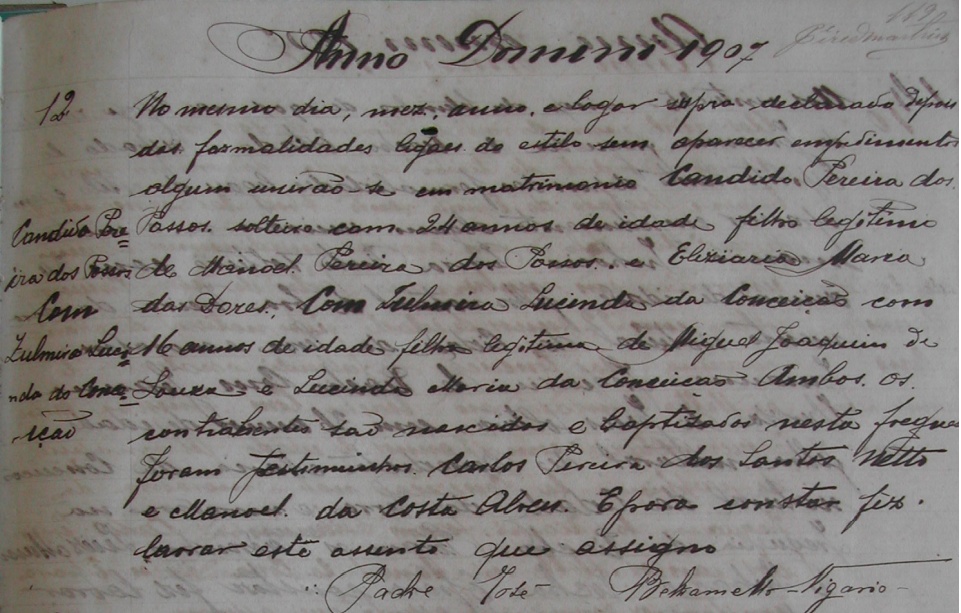 Anno Domini 1907
119
12 No mesmo dia, mez, anno, e logar supra declarado depois
das formalidades legaes do estilo sem aparecer empedimento
algum unirão-se em matrimonio Candido Pereira dos
Passos solteiro com 24 annos de idade filho legitimo
de Manoel Pereira dos Passos. e Eliziaria Maria
das Dores, Com Zulmira Lucinda da Conceição com
16 annos de idade filha legitima de Miguel Joaquim de
Souza e Lucinda Maria da Conceição Ambos os
contraentes são nascidos e baptisados nesta fregue
foram testiminhos Carlos Pereira dos Santos Netto
e Manoel da Costa Alves. E pora constar fiz
lavrar este assento que assigno
Padre José Vigario
Candido Pere=
ira dos Passos
Com
Zulmira Luci=
nda da Conce=
ição